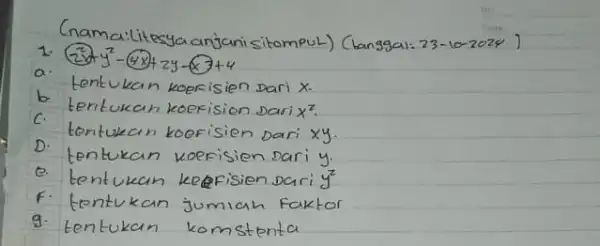 (nama:litesya anjani sitompul) (tanggal: 23-10-2024)
1. 2x²+y²-4x+2y-x²+4
a. tentukan koefisien Dari x.
b tentukan koefision Dari x².
C. tontukan koofisien Dari xy.
D. tentukan koefisien Dari y.
e. tentukan keefisien Dari y²
F. tentukan jumlah Faktor
g. tentukan komstenta